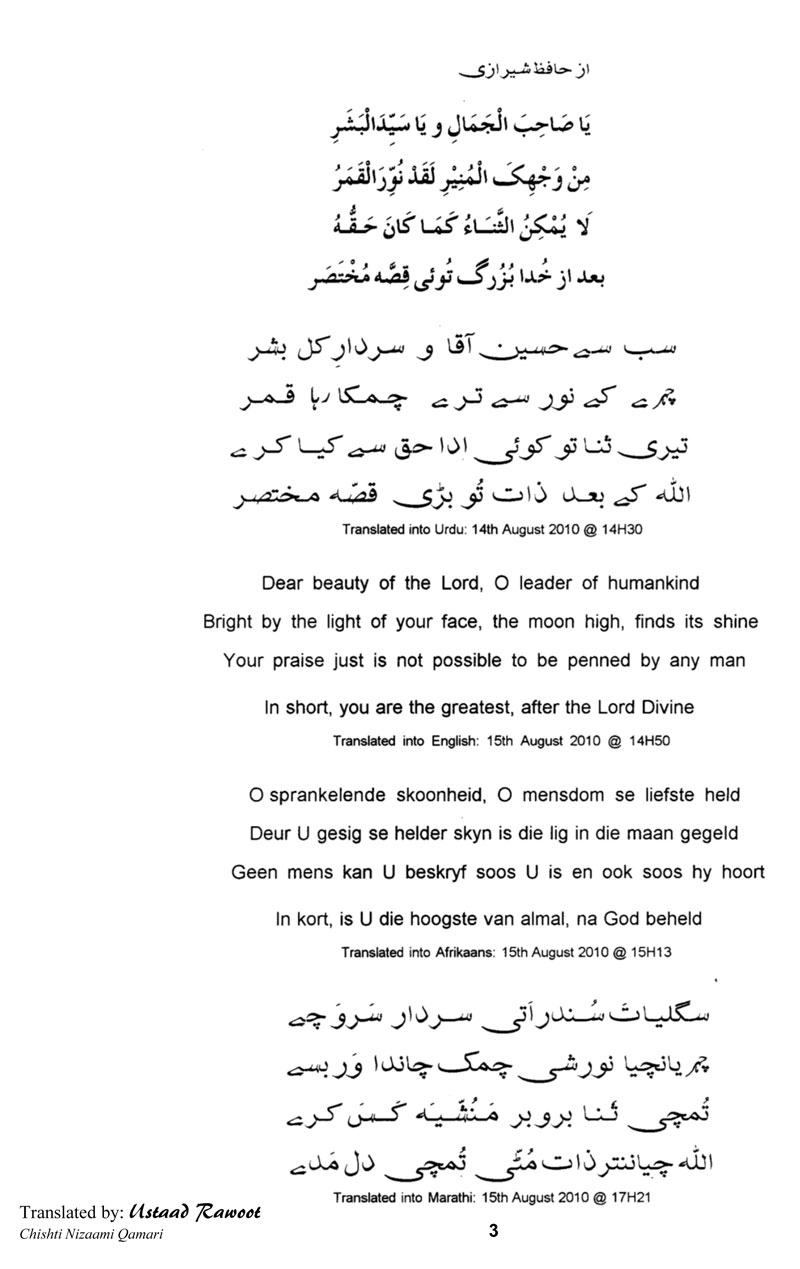 از حافظ شیرازی
يَا صَاحِبَ الْجَمَالِ و يَا سَيِّدَالْبَشَرِ
مِنْ وَجْهِکَ الْمُنِيْرِ لَقَدْ نُوِّرَالْقَمَرُ
لَا يُمْکِنُ الثَّنَاءُ کَمَا کَانَ حَقُّهُ
بعد از خُدا بُزُرگ تُوئی قِصَّه مُخْتَصَر
سب سے حسین آقا و سردارِ کل بشر
چہرے کے نور سے ترے چمکا رہا قمر
تیری ثنا تو کوئی ادا حق سے کیا کرے
اللہ کے بعد ذات تُو بڑی قصّہ مختصر
Translated into Urdu: 14th August 2010 @ 14H30
Dear beauty of the Lord, O leader of humankind
Bright by the light of your face, the moon high, finds its shine
Your praise just is not possible to be penned by any man
In short, you are the greatest, after the Lord Divine
Translated into English: 15th August 2010 @ 14H50
O sprankelende skoonheid, O mensdom se liefste held
Deur U gesig se helder skyn is die lig in die maan gegeld
Geen mens kan U beskryf soos U is en ook soos hy hoort
In kort, is U die hoogste van almal, na God beheld
Translated into Afrikaans: 15th August 2010 @ 15H13
سگلیاتَ سُندر اَتی سردار سَروَ چے
چہریانچیا نورشی چمک چاندا وَر بسے
تُمچی ثنا بروبر مَنُشّیَہ کَسَ کرے
اللہ چیاننتر ذات مُٹّی تُمچی دل مَدے
Translated into Marathi: 15th August 2010 @ 17H21
Translated by: Ustaad Rawoot
Chishti Nizaami Qamari
3